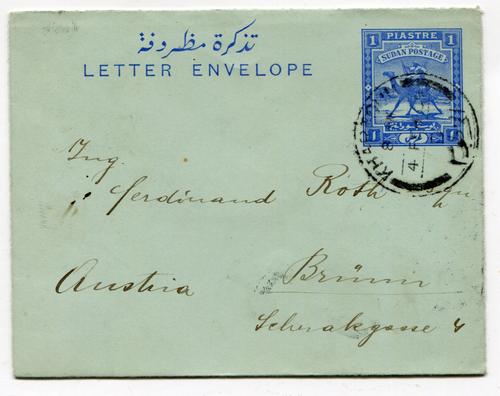 تذكرة مظروفة
LETTER ENVELOPE
1 PIASTRE 1
SUDAN POSTAGE
1 1
KHARTOUM
4
Ing.
Ferdinand Roth
Austria Brünn
Schwakgasse 4